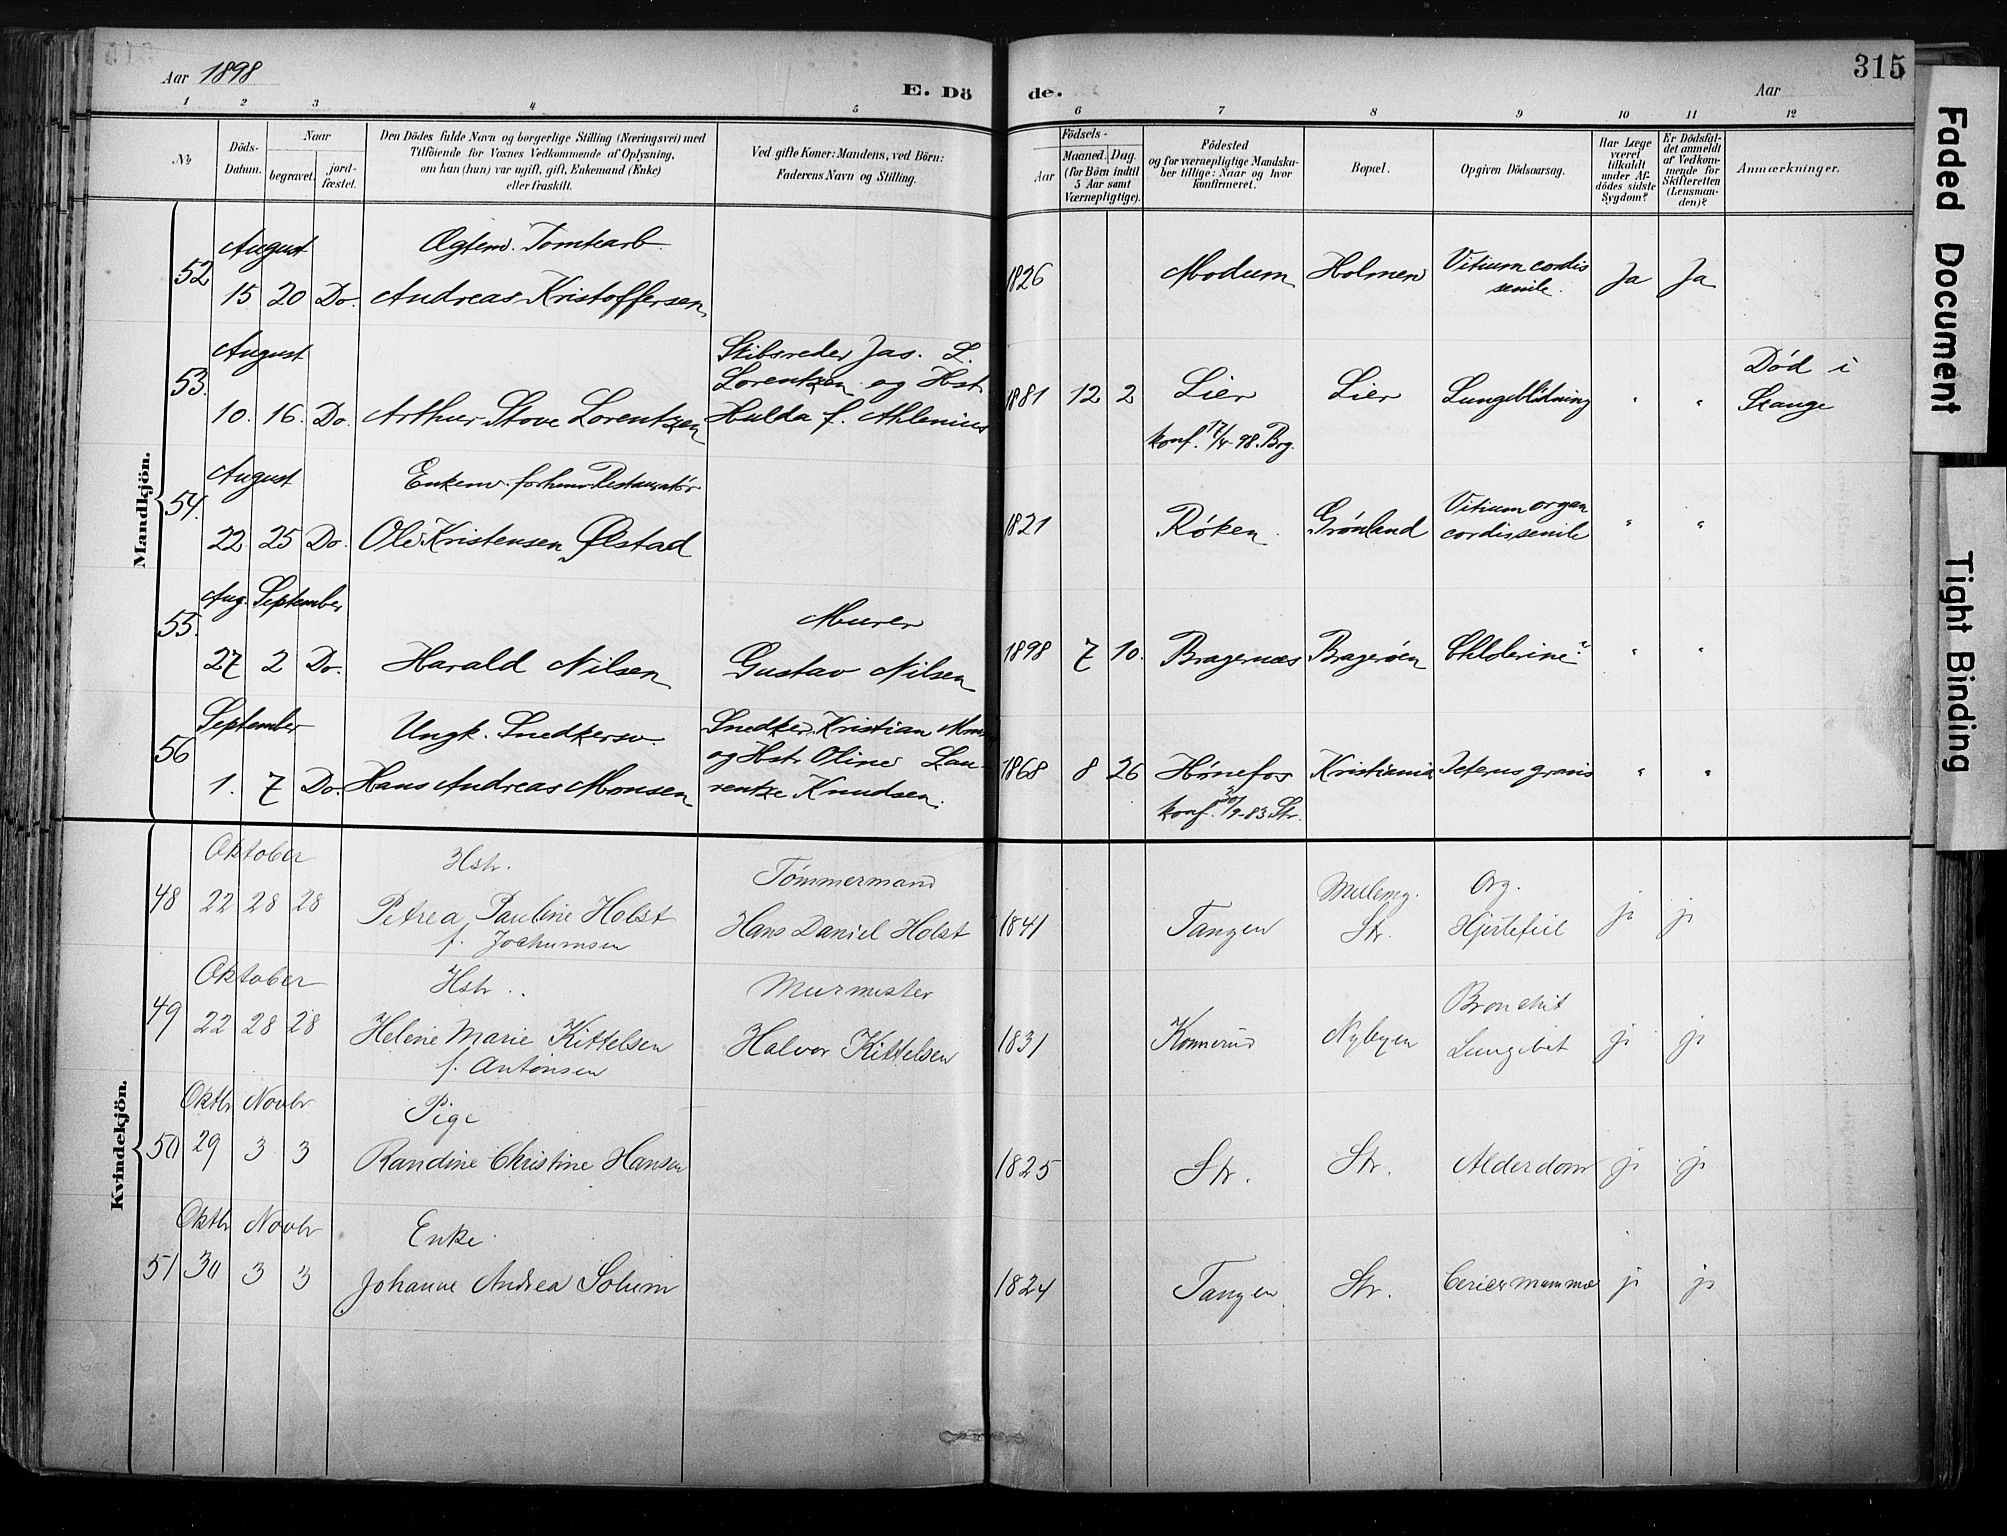 315
Aar 1898
E. Dö de.
Aar
1 2 3 4 5 6 7 8 9 10 11 12
No
Döds-Datum.
Naar
begravet.
jord-fæstet.
Den Dödes fulde Navn og borgerlige Stilling (Næringsvei) med
Tilföiende for Voxnes Vedkommende af Oplysning,
om han (hun) var ugift, gift, Enkemand (Enke)
eller fraskilt.
Ved gifte Koner: Mandens, ved Börn:
Faderens Navn og Stilling.
Födsels-
Aar
Maaned. Dag.
(for Börn indtil
5 Aar samt
Værnepligtige).
Födested
og for værnepligtige Mandska-
ber tillige: Naar og hvor
konfirmeret.
Bopæl.
Opgiven Dödsaarsag.
Har Læge
været
tilkaldt
under Af-
dödes sidste
Sygdom?
Er Dödsfal-
det anmeldt
af Vedkom-
mende for
Skifteretten
(Lensman-
den)?
Anmærkninger.
Mandkjön.
August Ægtem. Tomtearb.
52 15 20 Do. Andreas Kristoffersen 1826 Modum Holmen Vitium cordis
senile. Ja Ja
August Skibsreder Jas. L.
Lorentzen og Hstr
53. 10. 16. Do. Arthur Stove Lorentzen Hulda f. Ahlenius 1881 12 2 Lier Lier Lungeblödning " " Död i
Stange
konf. 17/4-98. Brg.
August Enkem. forhenv. Restauratör
54. 22 25 Do. Ole Kristensen Ølstad 1821 Röken. Grönland Vitium organ
cordis senile " "
Aug. September Murer
55. 27 2 Do. Harald Nilsen Gustav Nilsen 1898 7 10. Bragernæs Bragerøen Cholerine? " "
September Ungk. Snedkersv. Snedker Kristian
og Hstr Oline Lau-
56 1. 7 Do. Hans Andreas Monsen rentze Knudsen. 1868 8 26 Hönefos Kristiania Icterus gravis " "
konf. 30/9-83 Str.
Kvindekjön.
Oktober Hstr. Tömmermand
48 22 28 28 Petrea Pauline Holst Hans Daniel Holst 1841 Tangen Mellemg.
Str. Org.
Hjertefeil ja ja
f. Jochumsen
Oktober Hstr. Murmester
49 22 28 28 Helene Marie Kittelsen Halvor Kittelsen 1831 Konnerud Nybyen Bronchit
Lungebet ja ja
f. Antonsen
Oktbr Novbr Pige
50 29 3 3 Randine Christine Hansen 1825 Str. Str. Alderdom ja ja
Oktbr Novbr Enke
51 30 3 3 Johanne Andrea Solum 1824 Tangen Str. mammæ ja ja
Faded Document
Tight Binding